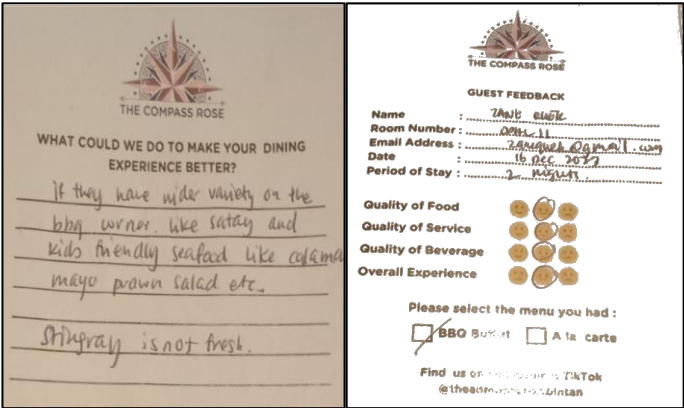 THE COMPASS ROSE
WHAT COULD WE DO TO MAKE YOUR DINING
EXPERIENCE BETTER?
if they have wider variety on the
bbq corner. like satay and
kids friendly seafood like calama
mayo prawn salad etc.
Stingray is not fresh.
THE COMPASS ROSE
GUEST FEEDBACK
Name :
Room Number : 11
Email Address : @gmail.com
Date : 16 Dec
Period of Stay : 2 nights.
Quality of Food
Quality of Service
Quality of Beverage
Overall Experience
Please select the menu you had :
BBQ Buffet A la carte
Find us on TikTok